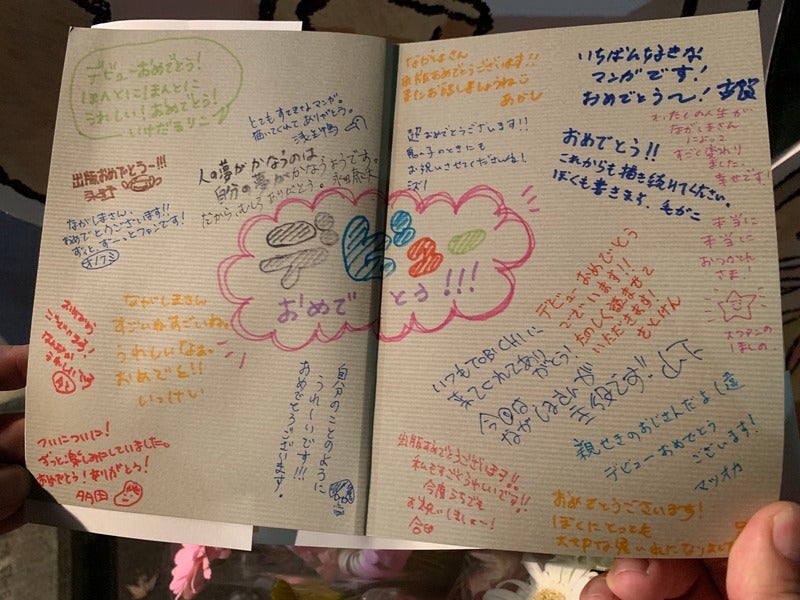 デビューおめでとう!
ほんとにほんとに
うれしい!おめでとう!
いけだるりこ
とてもすてきなマンガ。
描いてくれてありがとう。
浅生鴨
出版おめでとう〜!!!
人の夢がかなうのは、
自分の夢がかなうようです。
だから、むしろありがとう。
ながしまさん、
おめでとうございます!!
ずっと、ずーっとファンです!
デビュー
おめでとう!!!
おめでとう
ございます!
うれしい
ながしまさん
すごいねすごいね。
うれしいなぁ。
おめでとう!!
いっけい
ついについに!
ずっと楽しみにしていました。
おめでとう!ありがとう!
自分のことのように
うれしいです!!!
おめでとうございます。
ながしまさん
出版おめでとうございます!!
またお話しましょうね
あかし
超おめでとうございます!!
お祝いさせてくださいね!
いちばんすきな
マンガです!
おめでとう〜!
わたしの人生が
ながしまさん
によって
すごく変わり
ました。
幸せです!
おめでとう!!
これからも描き続けてください。
ぼくも書きます。
本当に
本当に
おつかれ
さま!
スヴァンの
ほしの
デビューおめでとう
ございます!!
たのしく読ませて
いただきます!
さとけん
いつもTOBICHIに
来てくれてあり
がとう!
今日は
ながしまさんが
主役です!!
親せきのおじさんだよし達
デビューおめでとう
ございます!
マツオカ
出版おめでとうございます!!
私もすごくうれしいです!!
今度うちでも
お祝いしましょー!
おめでとうございます!
ぼくにとっても
大切な思い出になりました